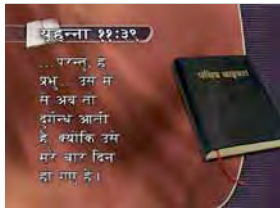 यूहन्ना ११:३९
...परन्तु, हे
प्रभु... उस में
से अब तो
दुर्गन्ध आती
है, क्योंकि उसे
मरे चार दिन
हो गए हैं।
पवित्र बाइबल